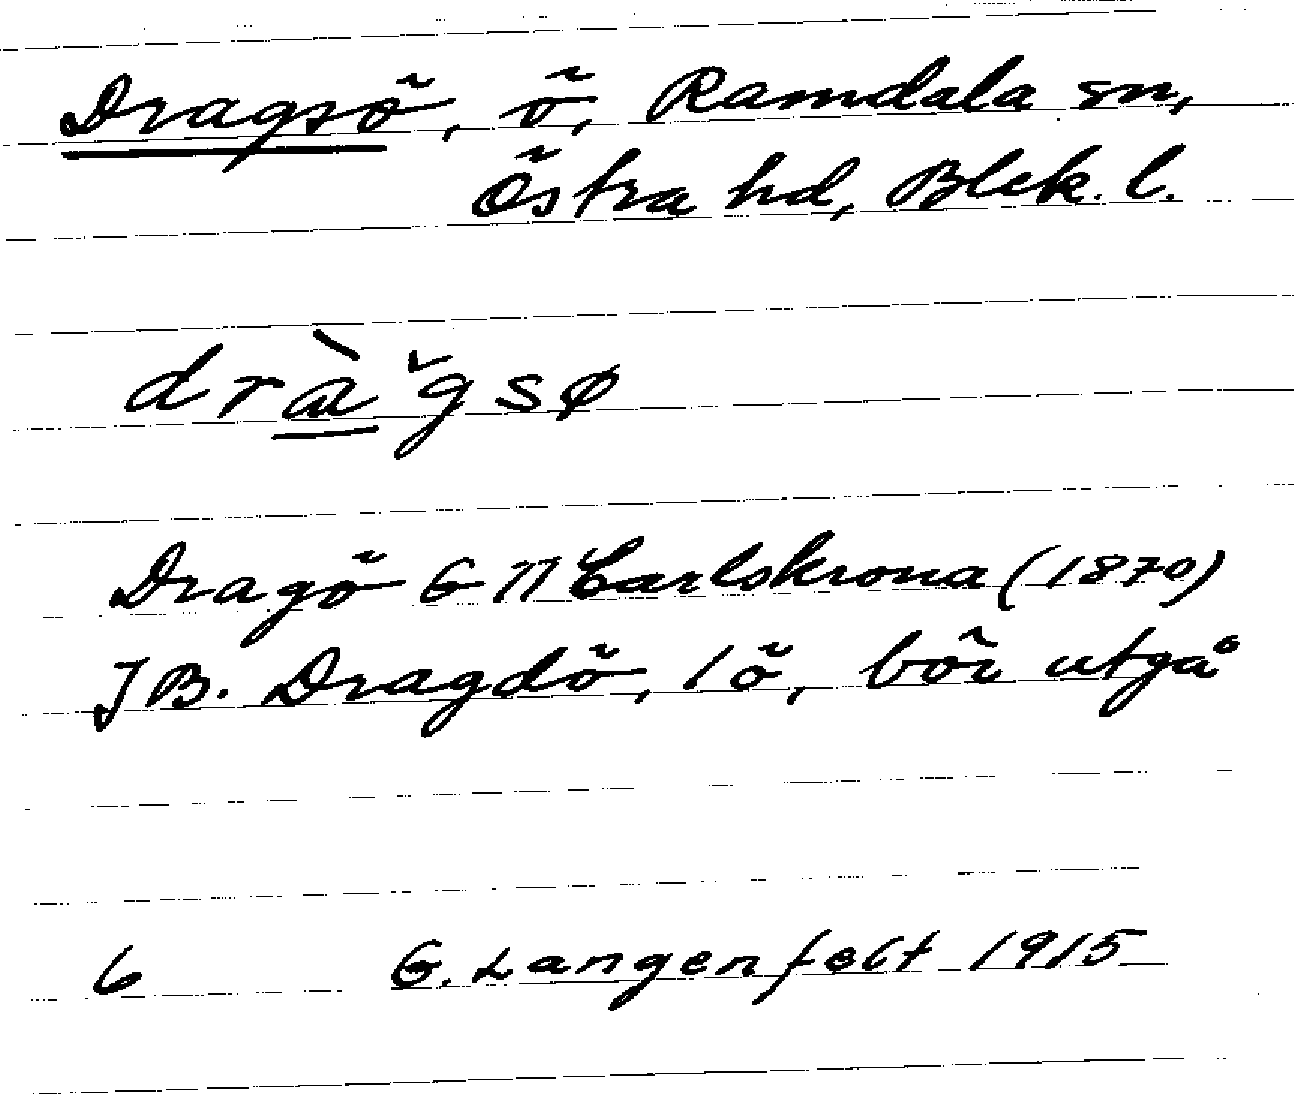 Dragsö, ö, Ramdala sn,
Östra hd, Blek. l.
dràgsø
Dragö G II Carlskrona (1870)
JB. Dragdö, 1 ö, bör utgå
6 G. Langenfelt 1915